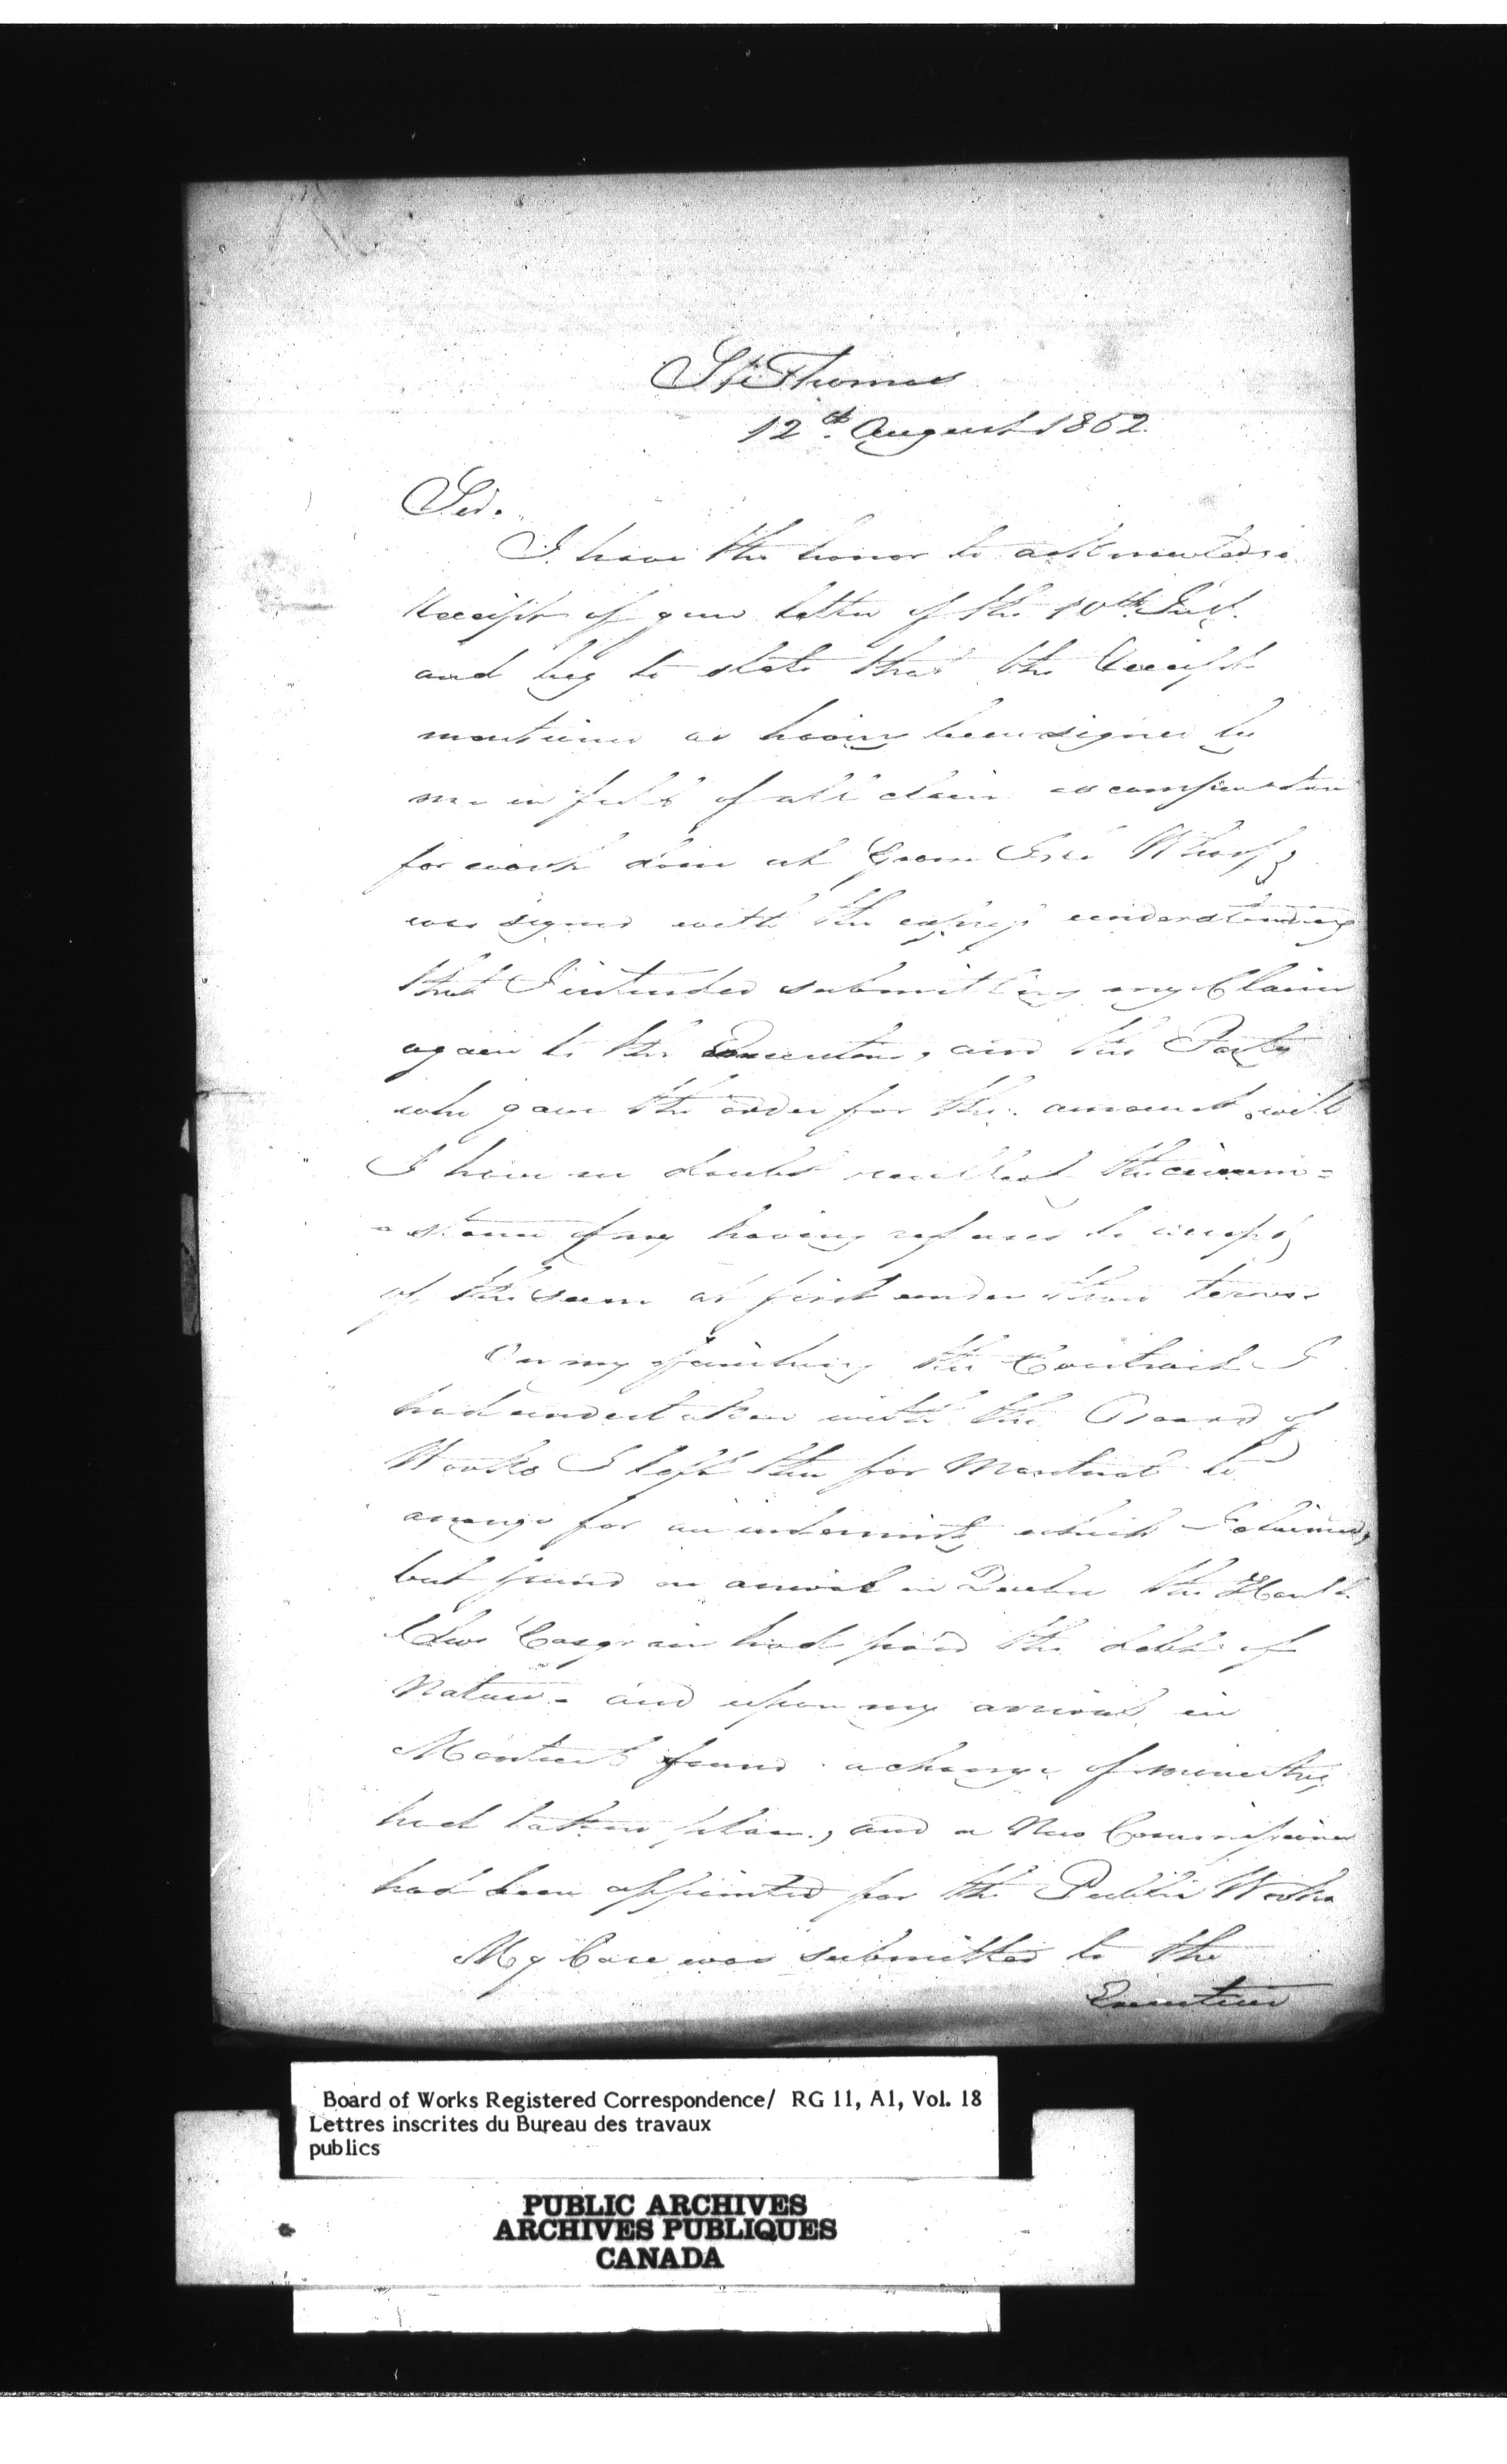 St. Thomas
12th August 1852.
Sir.
I have the honor to acknowledge
Receipt of your letter of the 10th Inst.
and beg to state that the Receipt
mentioned as having been signed by
me in full of all claim as compensation
for work done at Green Isle Wharf,
was signed with the express understanding
that I intended submitting my Claim
again to the Executive, and the Party
who gave the order for the amount, will
I have no doubt recollect the circum=
=stance of my having refused to accept
of the sum at first under those terms.
On my finishing the Contract I
had undertaken with the Board of
Works I left this for Montreal to
arrange for an indemnity which I claimed,
but found on arrival in Quebec the Honble.
Casgrain had paid the debt of
Nature - and upon my arrival in
Montreal found a change of ministry
had taken place, and a New Commissioner
had been appointed for the Public Works
My Case was submitted to the
Executive
Board of Works Registered Correspondence/ RG 11, A1, Vol. 18
Lettres inscrites du Bureau des travaux
publics
PUBLIC ARCHIVES
ARCHIVES PUBLIQUES
CANADA